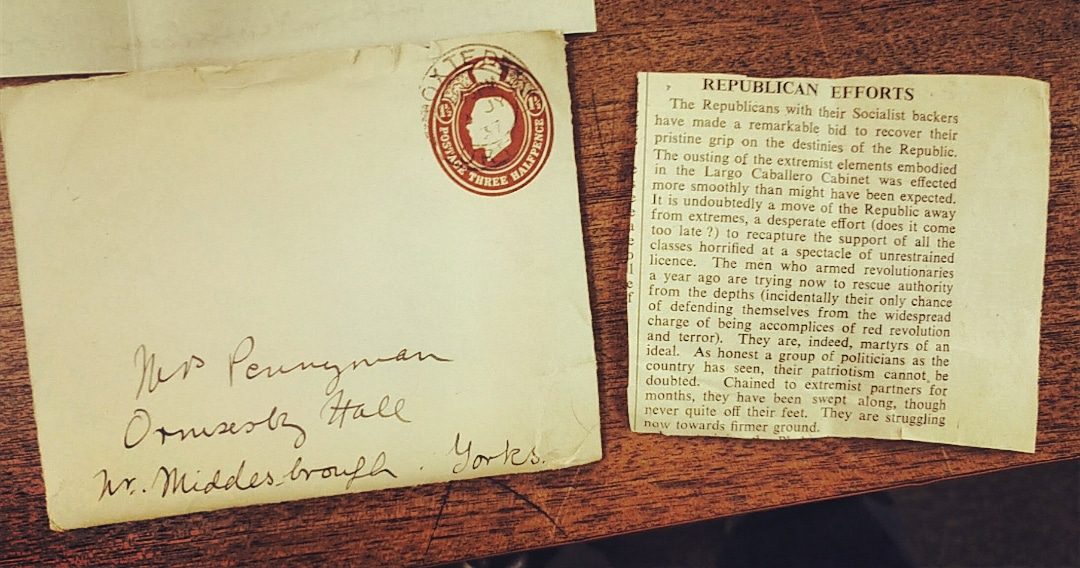 OXTED
POSTAGE THREE HALFPENCE
Mrs Pennyman
Ormesby Hall
Nr. Middlesbrough. Yorks.
REPUBLICAN EFFORTS
The Republicans with their Socialist backers
have made a remarkable bid to recover their
pristine grip on the destinies of the Republic.
The ousting of the extremist elements embodied
in the Largo Caballero Cabinet was effected
more smoothly than might have been expected.
It is undoubtedly a move of the Republic away
from extremes, a desperate effort (does it come
too late ?) to recapture the support of all the
classes horrified at a spectacle of unrestrained
licence. The men who armed revolutionaries
a year ago are trying now to rescue authority
from the depths (incidentally their only chance
of defending themselves from the widespread
charge of being accomplices of red revolution
and terror). They are, indeed, martyrs of an
ideal. As honest a group of politicians as the
country has seen, their patriotism cannot be
doubted. Chained to extremist partners for
months, they have been swept along, though
never quite off their feet. They are struggling
now towards firmer ground.